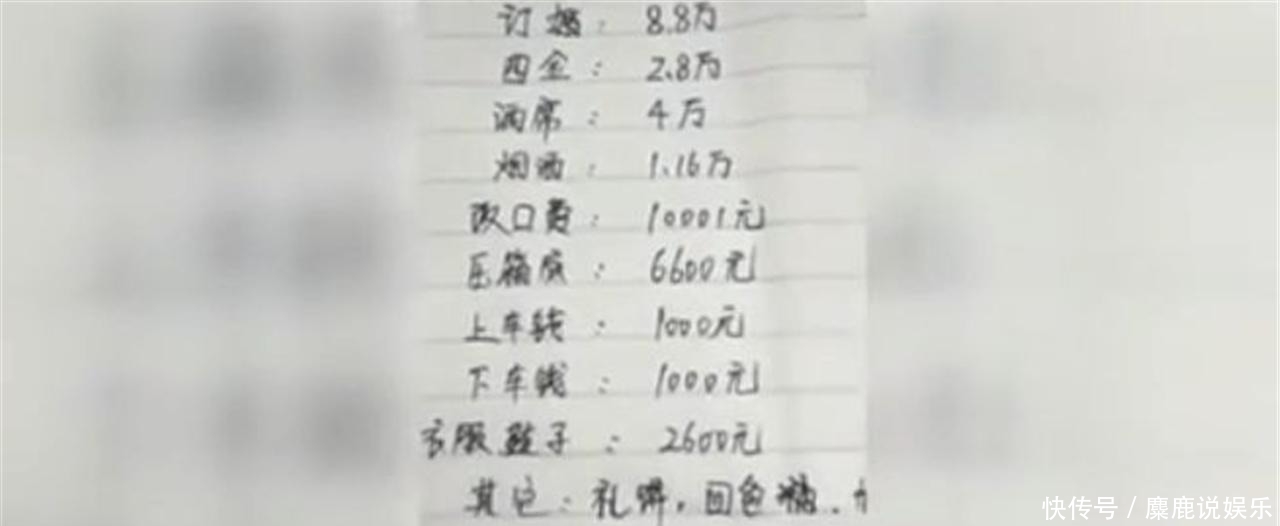 订婚：8.8万
四金：2.8万
酒席：4万
烟酒：1.16万
改口费：10001元
压箱底：6600元
上车钱：1000元
下车钱：1000元
衣服鞋子：2600元
其它：礼饼，回色糖、
快传号 / 麋鹿说娱乐